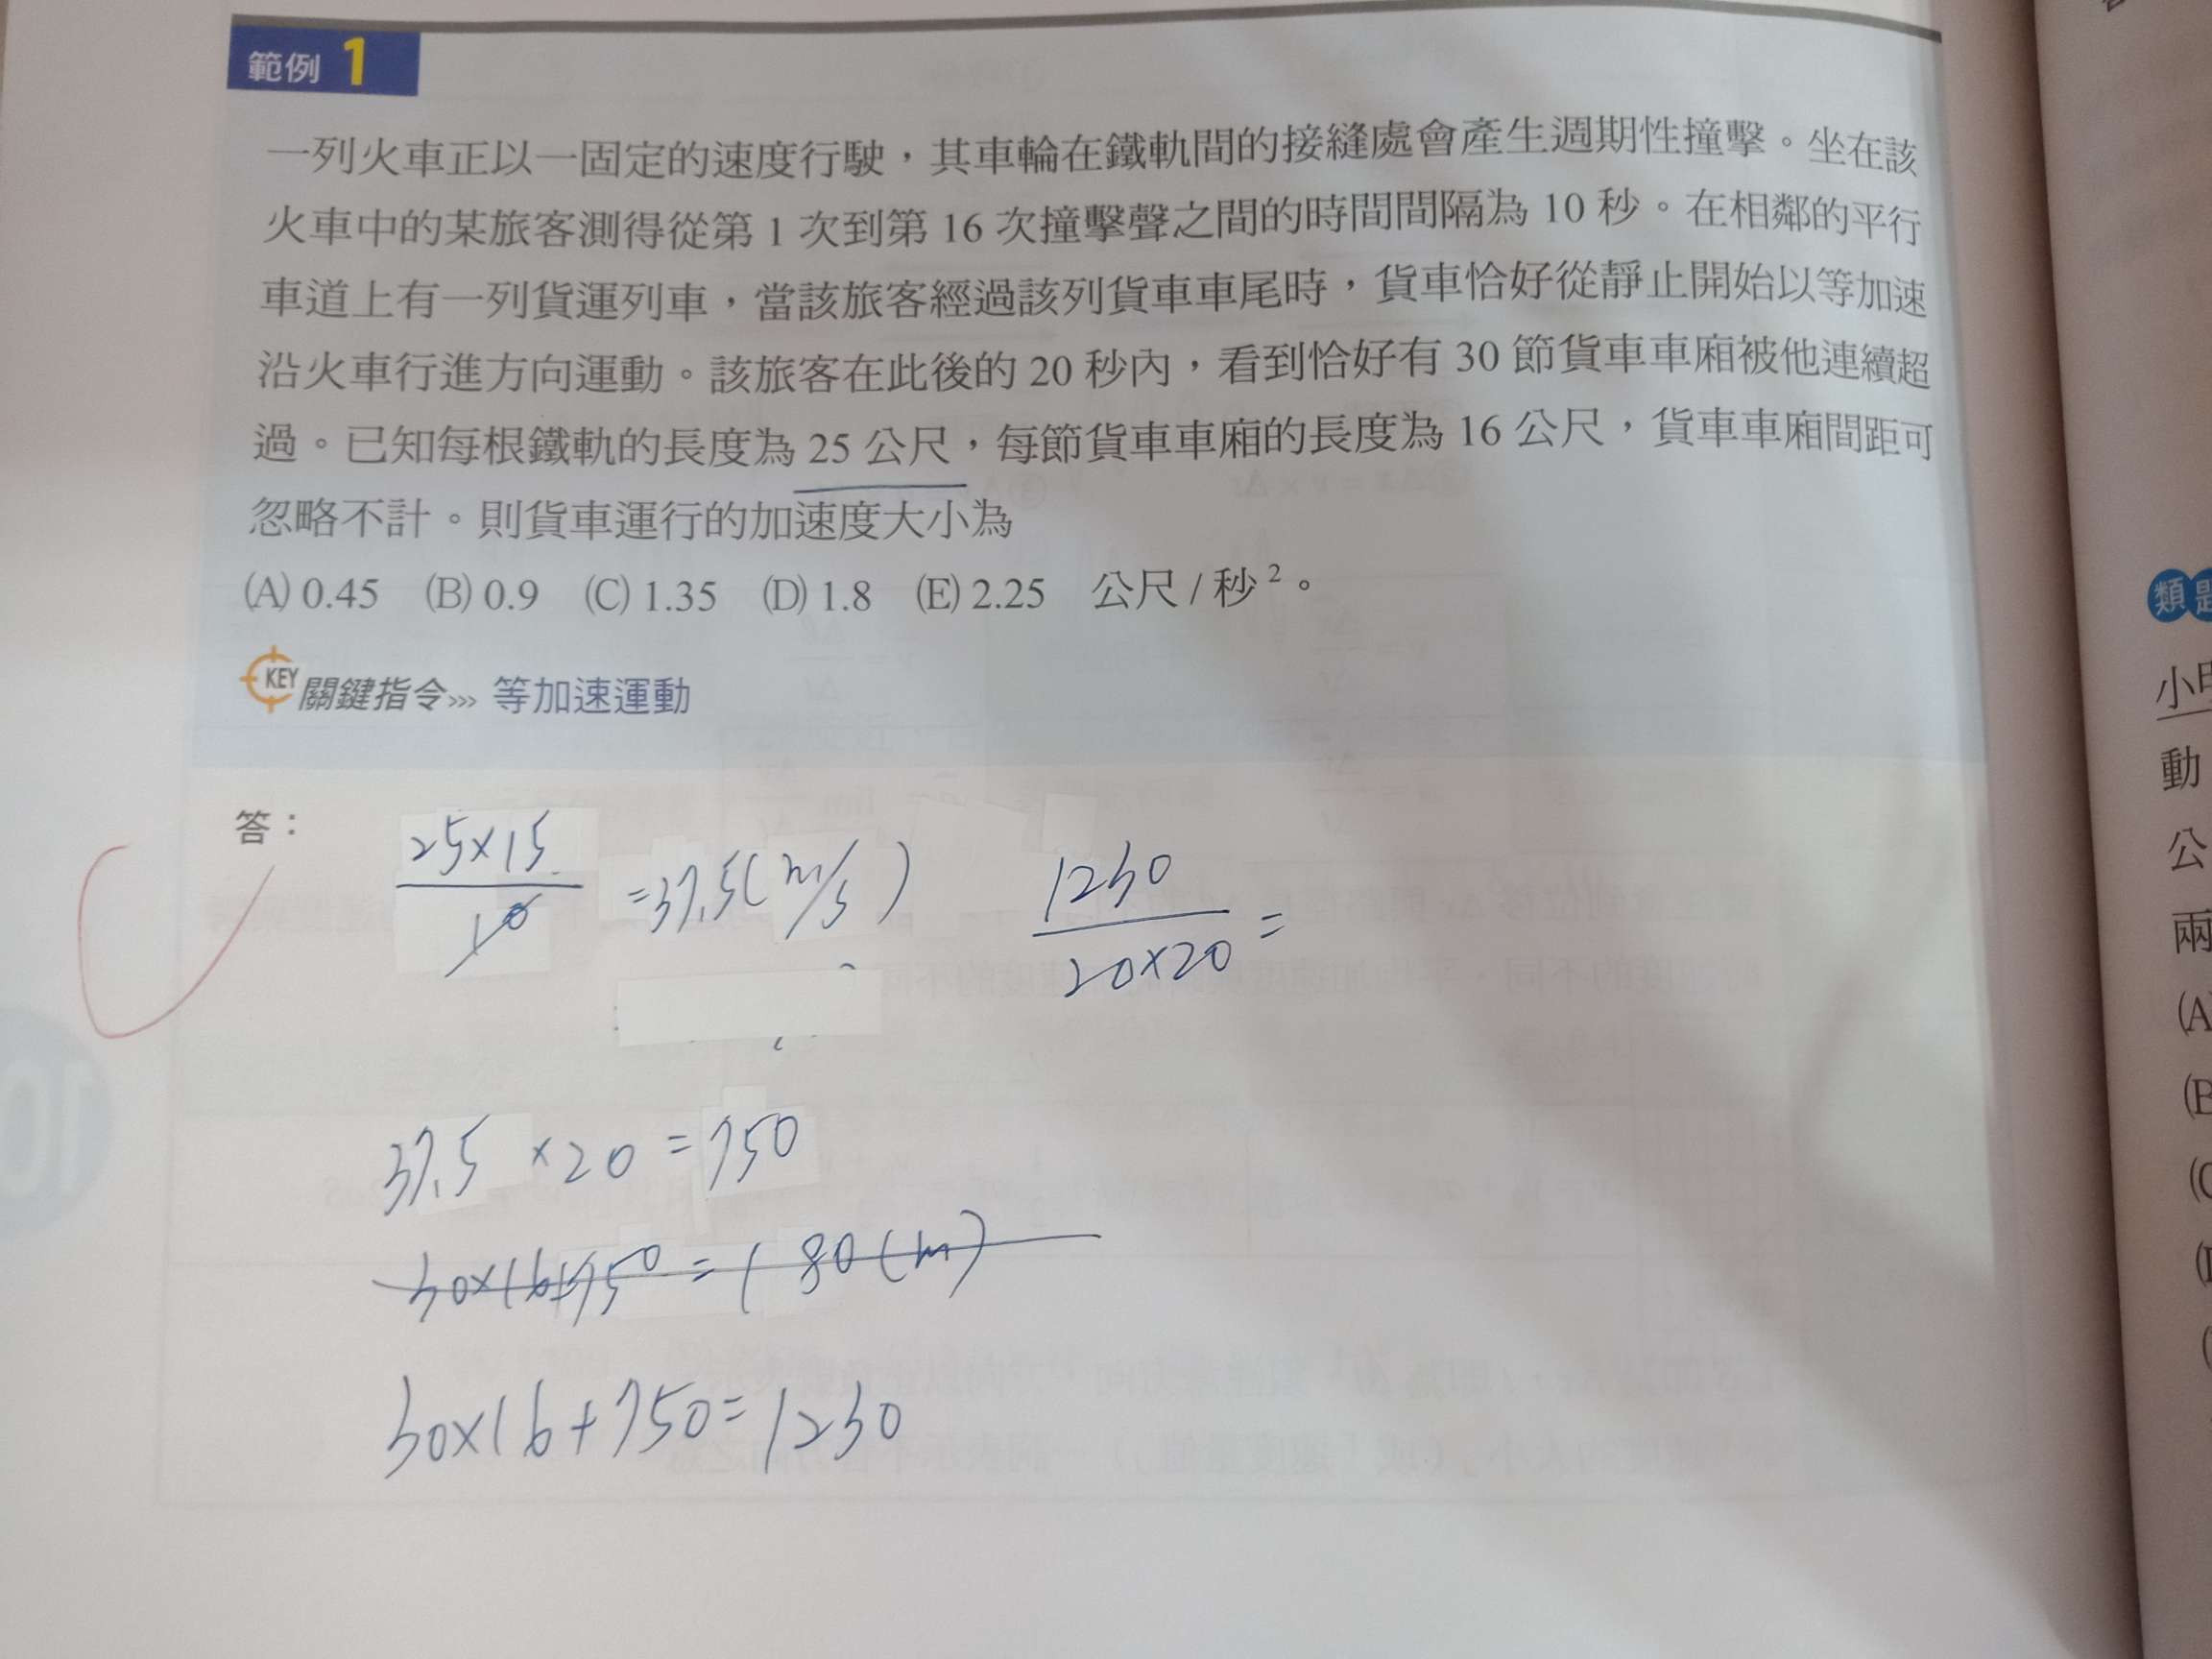 範例 1
一列火車正以一固定的速度行駛，其車輪在鐵軌間的接縫處會產生週期性撞擊。坐在該
火車中的某旅客測得從第 1 次到第 16 次撞擊聲之間的時間間隔為 10 秒。在相鄰的平行
車道上有一列貨運列車，當該旅客經過該列貨車車尾時，貨車恰好從靜止開始以等加速
沿火車行進方向運動。該旅客在此後的 20 秒內，看到恰好有 30 節貨車車廂被他連續超
過。已知每根鐵軌的長度為 25 公尺，每節貨車車廂的長度為 16 公尺，貨車車廂間距可
忽略不計。則貨車運行的加速度大小為
(A) 0.45 (B) 0.9 (C) 1.35 (D) 1.8 (E) 2.25 公尺 / 秒²。
KEY 關鍵指令››› 等加速運動
答：
25×15
10
=37.5(m/s)
1230
20×20
=
37.5 ×20 =750
30×16+750=1230
類題
小明
動
公
兩
(A)
(B
(C